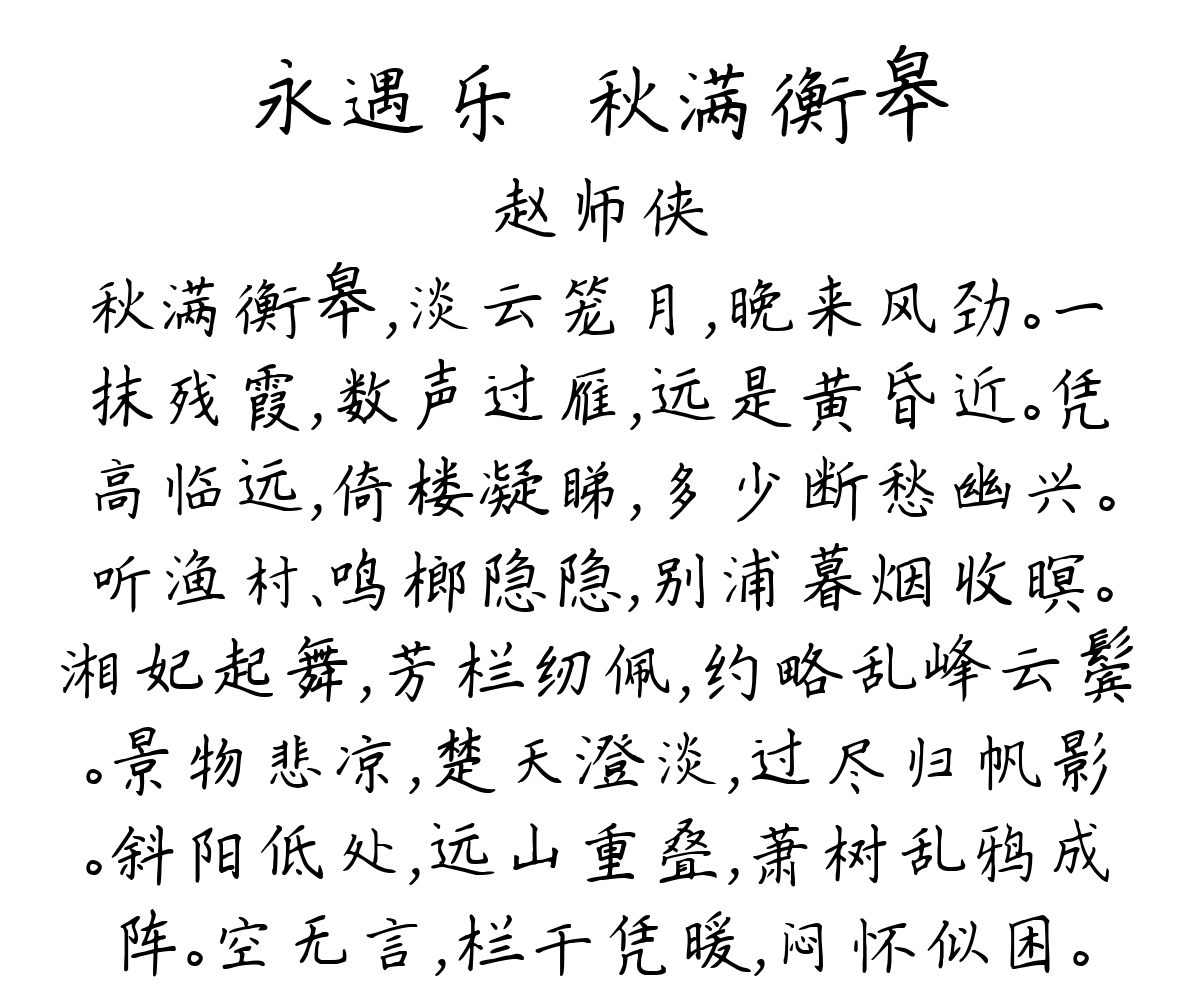 永遇乐 秋满衡皋
赵师侠
秋满衡皋,淡云笼月,晚来风劲。一
抹残霞,数声过雁,远是黄昏近。凭
高临远,倚楼凝睇,多少断愁幽兴。
听渔村、鸣榔隐隐,别浦暮烟收暝。
湘妃起舞,芳栏纫佩,约略乱峰云鬓
。景物悲凉,楚天澄淡,过尽归帆影
。斜阳低处,远山重叠,萧树乱鸦成
阵。空无言,栏干凭暖,闷怀似困。